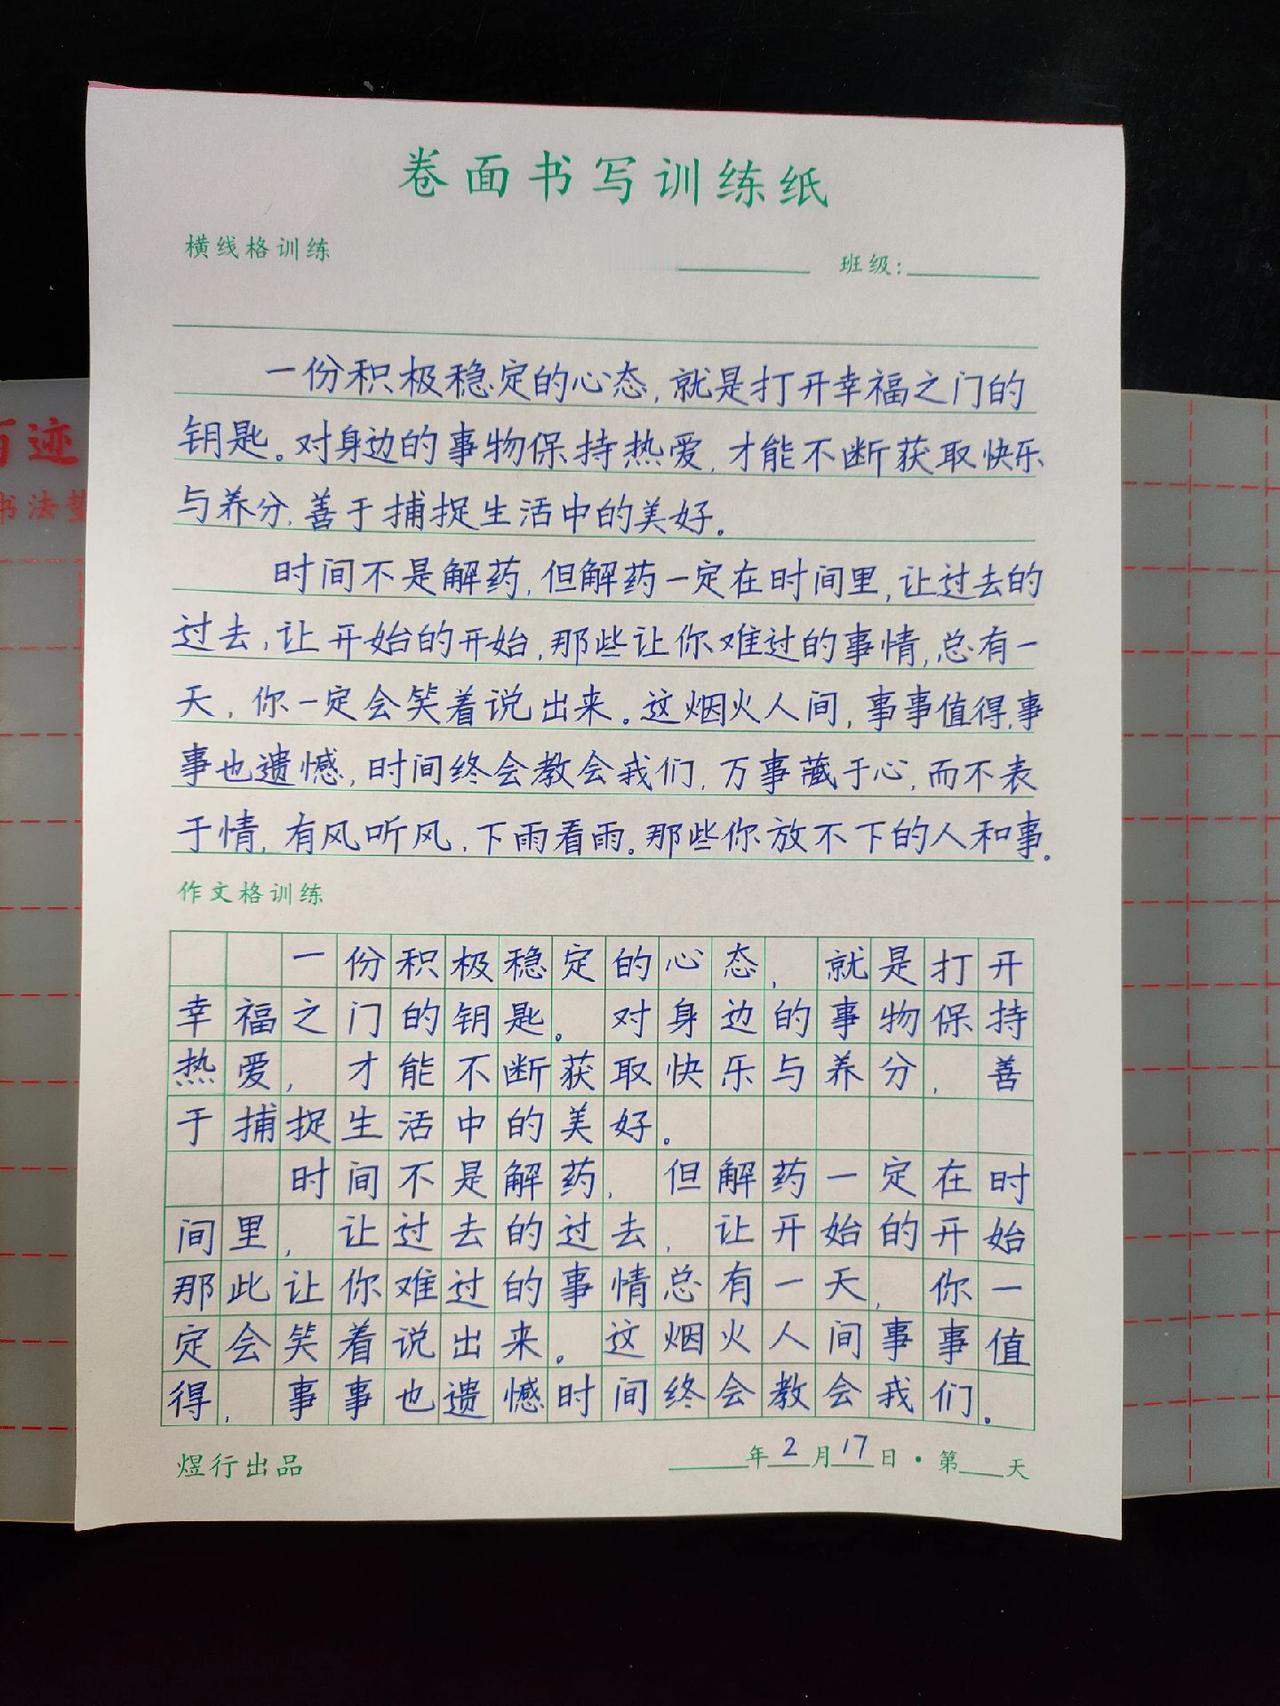 卷面书写训练纸
横线格训练
班级:
一份积极稳定的心态,就是打开幸福之门的
钥匙。对身边的事物保持热爱,才能不断获取快乐
与养分,善于捕捉生活中的美好。
时间不是解药,但解药一定在时间里,让过去的
过去,让开始的开始,那些让你难过的事情,总有一
天,你一定会笑着说出来。这烟火人间,事事值得,事
事也遗憾,时间终会教会我们,万事藏于心,而不表
于情,有风听风,下雨看雨。那些你放不下的人和事。
作文格训练
一份积极稳定的心态,就是打开
幸福之门的钥匙。对身边的事物保持
热爱,才能不断获取快乐与养分,善
于捕捉生活中的美好。
时间不是解药,但解药一定在时
间里,让过去的过去,让开始的开始
那此让你难过的事情总有一天,你一
定会笑着说出来。这烟火人间事事值
得,事事也遗憾时间终会教会我们。
煜行出品
年2月17日·第 天
百迹
书法垫